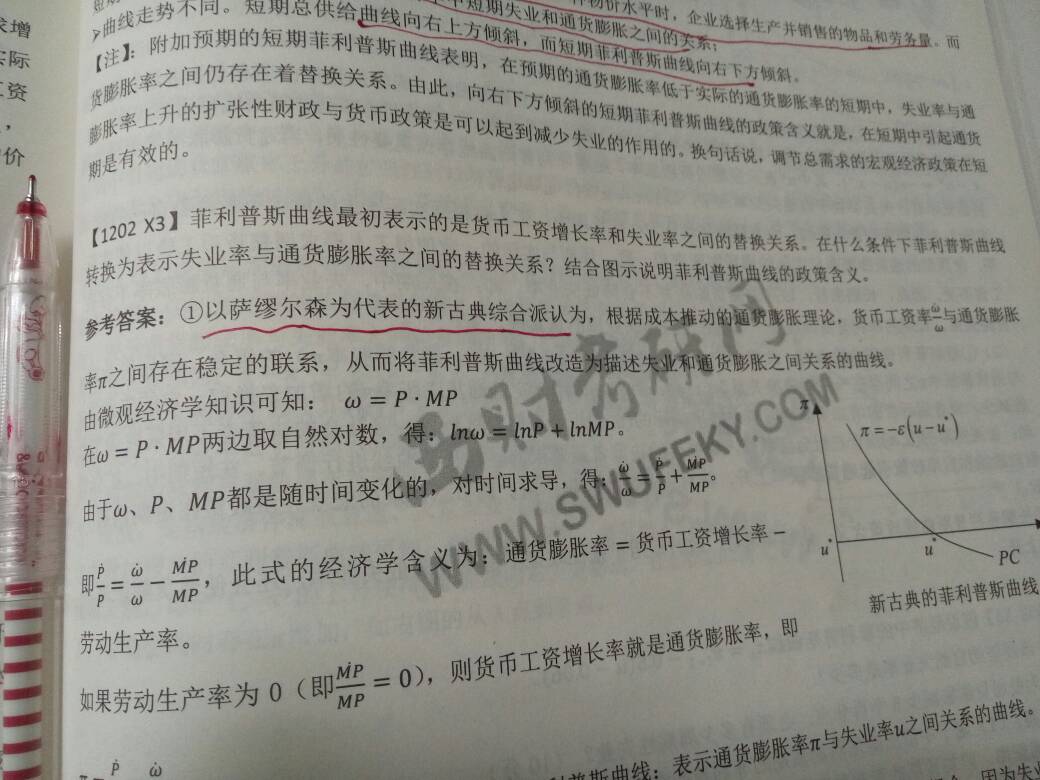 求增
实际
工资
，
物价
种物价水平时，企业选择生产并销售的物品和劳务量。而
短期失业和通货膨胀之间的关系；
➢曲线走势不同。短期总供给曲线向右上方倾斜，而短期菲利普斯曲线向右下方倾斜。
【注】：附加预期的短期菲利普斯曲线表明，在预期的通货膨胀率低于实际的通货膨胀率的短期中，失业率与通
货膨胀率之间仍存在着替换关系。由此，向右下方倾斜的短期菲利普斯曲线的政策含义就是，在短期中引起通货
膨胀率上升的扩张性财政与货币政策是可以起到减少失业的作用的。换句话说，调节总需求的宏观经济政策在短
期是有效的。
【1202 X3】菲利普斯曲线最初表示的是货币工资增长率和失业率之间的替换关系。在什么条件下菲利普斯曲线
转换为表示失业率与通货膨胀率之间的替换关系？结合图示说明菲利普斯曲线的政策含义。
参考答案：①以萨缪尔森为代表的新古典综合派认为，根据成本推动的通货膨胀理论，货币工资率ω̇/ω与通货膨胀
率π之间存在稳定的联系，从而将菲利普斯曲线改造为描述失业和通货膨胀之间关系的曲线。
由微观经济学知识可知： ω = P · MP
在ω = P · MP两边取自然对数，得：lnω = lnP + lnMP。
由于ω、P、MP都是随时间变化的，对时间求导，得：ω̇/ω = Ṗ/P + ṀP/MP。
即Ṗ/P = ω̇/ω − ṀP/MP，此式的经济学含义为：通货膨胀率 = 货币工资增长率 −
劳动生产率。
如果劳动生产率为 0（即ṀP/MP = 0），则货币工资增长率就是通货膨胀率，即
π
π = −ε(u − u*)
u*
u*
PC
新古典的菲利普斯曲线
利普斯曲线：表示通货膨胀率π与失业率u之间关系的曲线。
π = Ṗ/P ω̇/ω
因为失业
财考研网
WWW.SWUFEKY.COM